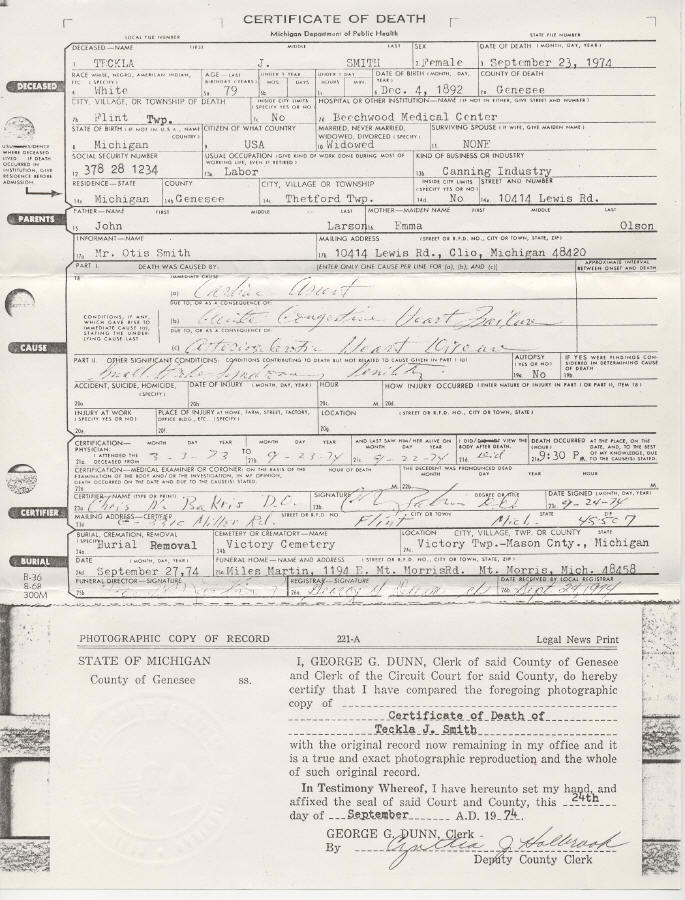 CERTIFICATE OF DEATH
Michigan Department of Public Health
LOCAL FILE NUMBER STATE FILE NUMBER
DECEASED—NAME FIRST MIDDLE LAST SEX DATE OF DEATH (MONTH, DAY, YEAR)
1 TECKLA J. SMITH 2 Female 3 September 23, 1974
RACE WHITE, NEGRO, AMERICAN INDIAN, ETC. (SPECIFY) AGE—LAST BIRTHDAY (YEARS) UNDER 1 YEAR MOS. DAYS UNDER 1 DAY HOURS MIN. DATE OF BIRTH (MONTH, DAY, YEAR) COUNTY OF DEATH
DECEASED
4 White 5a 79 5b 5c 6 Dec. 4, 1892 7a Genesee
CITY, VILLAGE, OR TOWNSHIP OF DEATH INSIDE CITY LIMITS (SPECIFY YES OR NO) HOSPITAL OR OTHER INSTITUTION—NAME (IF NOT IN EITHER, GIVE STREET AND NUMBER)
7b Flint Twp. 7c No 7d Beechwood Medical Center
STATE OF BIRTH (IF NOT IN U.S.A., NAME COUNTRY) CITIZEN OF WHAT COUNTRY MARRIED, NEVER MARRIED, WIDOWED, DIVORCED (SPECIFY) SURVIVING SPOUSE (IF WIFE, GIVE MAIDEN NAME)
8 Michigan 9 USA 10 Widowed 11. NONE
USUAL RESIDENCE WHERE DECEASED LIVED IF DEATH OCCURRED IN INSTITUTION, GIVE RESIDENCE BEFORE ADMISSION.
SOCIAL SECURITY NUMBER USUAL OCCUPATION (GIVE KIND OF WORK DONE DURING MOST OF WORKING LIFE, EVEN IF RETIRED) KIND OF BUSINESS OR INDUSTRY
12 378 28 1234 13a Labor 13b Canning Industry
RESIDENCE—STATE COUNTY CITY, VILLAGE OR TOWNSHIP INSIDE CITY LIMITS (SPECIFY YES OR NO) STREET AND NUMBER
14a Michigan 14b Genesee 14c Thetford Twp. 14d No 14e 10414 Lewis Rd.
PARENTS
FATHER—NAME FIRST MIDDLE LAST MOTHER—MAIDEN NAME FIRST MIDDLE LAST
15 John Larson 16 Emma Olson
INFORMANT—NAME MAILING ADDRESS (STREET OR R.F.D. NO., CITY OR TOWN, STATE, ZIP)
17a Mr. Otis Smith 17b 10414 Lewis Rd., Clio, Michigan 48420
PART I. DEATH WAS CAUSED BY: [ENTER ONLY ONE CAUSE PER LINE FOR (a), (b), AND (c)] APPROXIMATE INTERVAL BETWEEN ONSET AND DEATH
18 IMMEDIATE CAUSE
(a) Cardiac Arrest
DUE TO, OR AS A CONSEQUENCE OF:
CONDITIONS, IF ANY, WHICH GAVE RISE TO IMMEDIATE CAUSE (a), STATING THE UNDERLYING CAUSE LAST
(b) Acute Congestive Heart Failure
DUE TO, OR AS A CONSEQUENCE OF:
CAUSE
(c) Arteriosclerotic Heart Disease
PART II. OTHER SIGNIFICANT CONDITIONS: CONDITIONS CONTRIBUTING TO DEATH BUT NOT RELATED TO CAUSE GIVEN IN PART I (a) AUTOPSY (YES OR NO) IF YES WERE FINDINGS CONSIDERED IN DETERMINING CAUSE OF DEATH
Senility 19a No 19b
ACCIDENT, SUICIDE, HOMICIDE, (SPECIFY) DATE OF INJURY (MONTH, DAY, YEAR) HOUR HOW INJURY OCCURRED (ENTER NATURE OF INJURY IN PART I OR PART II, ITEM 18)
20a 20b. 20c. M. 20d.
INJURY AT WORK (SPECIFY YES OR NO) PLACE OF INJURY AT HOME, FARM, STREET, FACTORY, OFFICE BLDG., ETC. (SPECIFY) LOCATION (STREET OR R.F.D. NO., CITY OR TOWN, STATE)
20e. 20f. 20g.
CERTIFICATION—PHYSICIAN: MONTH DAY YEAR MONTH DAY YEAR AND LAST SAW HIM/HER ALIVE ON MONTH DAY YEAR I DID/DID NOT VIEW THE BODY AFTER DEATH. DEATH OCCURRED AT THE PLACE, ON THE DATE, AND, TO THE BEST OF MY KNOWLEDGE, DUE TO THE CAUSE(S) STATED.
21a. I ATTENDED THE DECEASED FROM 3-3-73 TO 21b. 9-23-74 21c. 9-22-74 21d did 21e 9:30 P. M.
CERTIFICATION—MEDICAL EXAMINER OR CORONER: ON THE BASIS OF THE EXAMINATION OF THE BODY AND/OR THE INVESTIGATION, IN MY OPINION, DEATH OCCURRED ON THE DATE AND DUE TO THE CAUSE(S) STATED. HOUR OF DEATH THE DECEDENT WAS PRONOUNCED DEAD MONTH DAY YEAR HOUR
22a M. 22b M.
CERTIFIER—NAME (TYPE OR PRINT) SIGNATURE DEGREE OR TITLE DATE SIGNED (MONTH, DAY, YEAR)
23a Chris N. Bakris D.O. 23b D.O. 23c 9-24-74
CERTIFIER
MAILING ADDRESS—CERTIFIER STREET OR R.F.D. NO. CITY OR TOWN STATE ZIP
23d Miller Rd. Flint Mich.
BURIAL, CREMATION, REMOVAL (SPECIFY) CEMETERY OR CREMATORY—NAME LOCATION CITY, VILLAGE, TWP. OR COUNTY STATE
24a Burial Removal 24b Victory Cemetery 24c. Victory Twp.-Mason Cnty., Michigan
BURIAL
DATE (MONTH, DAY, YEAR) FUNERAL HOME—NAME AND ADDRESS (STREET OR R.F.D. NO., CITY OR TOWN, STATE, ZIP)
24d September 27,74 25a Miles Martin, 1194 E. Mt. MorrisRd. Mt. Morris, Mich. 48458
FUNERAL DIRECTOR—SIGNATURE REGISTRAR—SIGNATURE DATE RECEIVED BY LOCAL REGISTRAR
25b 26a George G. Dunn 26b Sept 24 1974
B-36
8-68
300M
PHOTOGRAPHIC COPY OF RECORD 221-A Legal News Print
STATE OF MICHIGAN
County of Genesee ss.
I, GEORGE G. DUNN, Clerk of said County of Genesee
and Clerk of the Circuit Court for said County, do hereby
certify that I have compared the foregoing photographic
copy of
Certificate of Death of
Teckla J. Smith
with the original record now remaining in my office and it
is a true and exact photographic reproduction and the whole
of such original record.
In Testimony Whereof, I have hereunto set my hand, and
affixed the seal of said Court and County, this 24th
day of September A.D. 1974.
GEORGE G. DUNN, Clerk
By Cynthia J Holbrook
Deputy County Clerk